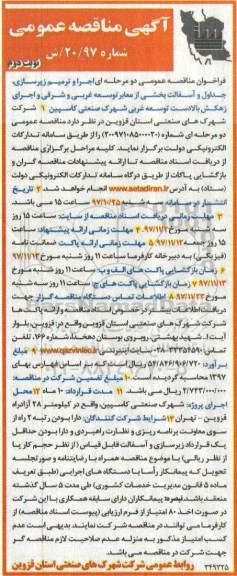 آگهی مناقصه عمومی
شماره ۲۰/۹۷/ش
نوبت دوم
فراخوان مناقصه عمومی دو مرحله ای اجرا و ترمیم زیرسازی،
جداول و آسفالت بخشی از معابر توسعه غربی و شرقی و اجرای
زهکش بالادست توسعه غربی شهرک صنعتی کاسپین ۱ شرکت
شهرک های صنعتی استان قزوین در نظر دارد مناقصه عمومی
دو مرحله ای شماره (۲۰۰۹۷۱۰۸۵۰۰۰۰۲۰) را از طریق سامانه تدارکات
الکترونیکی دولت برگزار نماید. کلیه مراحل برگزاری مناقصه
از دریافت اسناد مناقصه تا ارائه پیشنهادات مناقصه گران و
بازگشایی پاکات از طریق درگاه سامانه تدارکات الکترونیکی دولت
(ستاد) به آدرس www.setadiran.ir انجام خواهد شد. ۲ تاریخ
انتشار در سامانه مورخ ۹۷/۱۰/۲۵ ساعت ۱۵ می باشد.
۳ مهلت زمانی دریافت اسناد مناقصه از سایت: ساعت ۱۵ روز
سه شنبه مورخ ۹۷/۱۱/۲ ۴ مهلت زمانی ارائه پیشنهاد: ساعت
۱۵ روز جمعه ۹۷/۱۱/۱۲ ۵ مهلت زمانی ارائه پاکت ضمانت نامه
(فیزیکی) به دبیرخانه کارفرما ساعت ۱۱ روز شنبه مورخ ۹۷/۱۱/۱۳
۶ زمان بازگشایی پاکت های الف و ب: ساعت ۱۱ روز شنبه مورخ
۹۷/۱۱/۱۳ ۷ زمان بازگشایی پاکت های ج: ساعت ۱۱ روز سه شنبه
مورخ ۹۷/۱۱/۲۳ ۸ اطلاعات تماس دستگاه مناقصه گزار جهت
دریافت اطلاعات بیشتر در خصوص اسناد مناقصه و ارائه پاکت ها
شرکت شهرک های صنعتی استان قزوین واقع در: قزوین، بلوار
آیت ا... شهید بهشتی، روبروی بوستان دهخدا، شماره ۱۶۶، تلفن
۳۳۳۵۶۵۹۰-۰۲۸ سایت اینترنتی www.qazviniec.ir ۹ مبلغ
برآورد: ۵۴/۸۴۶/۹۰۶/۷۲۰ ریال که بر اساس فهارس بهای
۱۳۹۷ محاسبه گردیده است. ۱۰ مبلغ تضمین شرکت در مناقصه:
۲/۷۴۳/۰۰۰/۰۰۰ ریال می باشد. ۱۱ مدت قرارداد: ۱۰ ماه ۱۲ محل
اجرای پروژه: شهرک صنعتی کاسپین واقع در کیلومتر ۲۸ آزادراه
قزوین - تهران ۱۳ شرایط شرکت کنندگان: دارا بودن رتبه ۲ راه از
سوی معاونت برنامه ریزی و نظارت راهبردی و دارا بودن حداقل
یک قرارداد زیرسازی و آسفالت قابل قیاس (از نظر حجم کار یا
از نظر ریالی) با موضوع مناقصه همراه با رضایتنامه و صورتجلسه
تحویل که پیمانکار رأسا با دستگاه های اجرایی (طبق تعریف
ماده ۵ قانون مدیریت خدمات کشوری) طی مدت ۵ سال گذشته
منعقد باشد. تبصره: پیمانکاران دارای سابقه همکاری با این شرکت
در صورت اخذ ۸۰ امتیاز از فرم ارزیابی (پیوست اسناد مناقصه) از
کارفرما می توانند در مناقصه شرکت نمایند. بدیهی است عدم
کسب امتیاز مذکور به منزله عدم صلاحیت لازم مناقصه گر
جهت شرکت در مناقصه می باشد.
روابط عمومی شرکت شهرک های صنعتی استان قزوین
۳۴۹۳۲۵